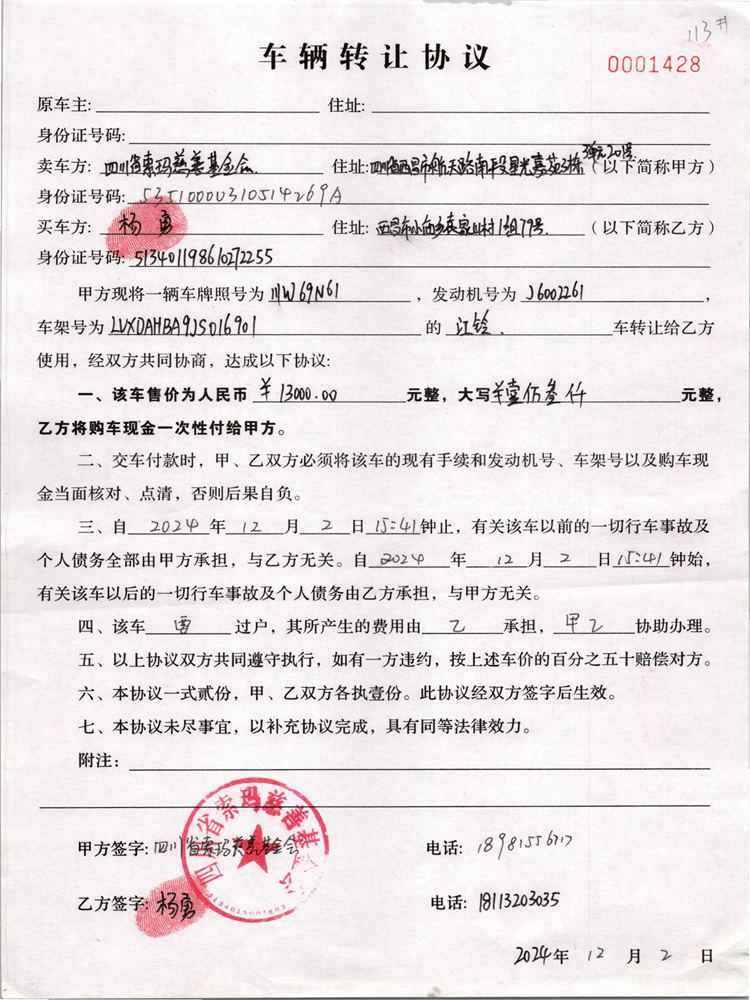 113#
车辆转让协议
0001428
原车主: 住址:
身份证号码:
卖车方: 四川省索玛慈善基金会 住址: 四川省西昌市航天路南段星光嘉苑3栋3单元201号 (以下简称甲方)
身份证号码: 5351000U310514269A
买车方: 杨勇 住址: 西昌市小庙乡袁家山村1组79号. (以下简称乙方)
身份证号码: 513401198610272255
甲方现将一辆车牌照号为 川W69N61 ,发动机号为 J6002261 ,
车架号为 LVXDAHBA9JS016901 的 江铃. 车转让给乙方
使用,经双方共同协商,达成以下协议:
一、该车售价为人民币 ¥13000.00 元整,大写 ¥壹佰叁仟 元整,
乙方将购车现金一次性付给甲方。
二、交车付款时,甲、乙双方必须将该车的现有手续和发动机号、车架号以及购车现
金当面核对、点清,否则后果自负。
三、自 2024 年 12 月 2 日 15:41 钟止,有关该车以前的一切行车事故及
个人债务全部由甲方承担,与乙方无关。自 2024 年 12 月 2 日 15:41 钟始,
有关该车以后的一切行车事故及个人债务由乙方承担,与甲方无关。
四、该车 需 过户,其所产生的费用由 乙 承担, 甲乙 协助办理。
五、以上协议双方共同遵守执行,如有一方违约,按上述车价的百分之五十赔偿对方。
六、本协议一式贰份,甲、乙双方各执壹份。此协议经双方签字后生效。
七、本协议未尽事宜,以补充协议完成,具有同等法律效力。
附注:
四川省索玛慈善基金会
甲方签字: 四川省索玛慈善基金会 电话: 18981556717
乙方签字: 杨勇 电话: 18113203035
2024 年 12 月 2 日